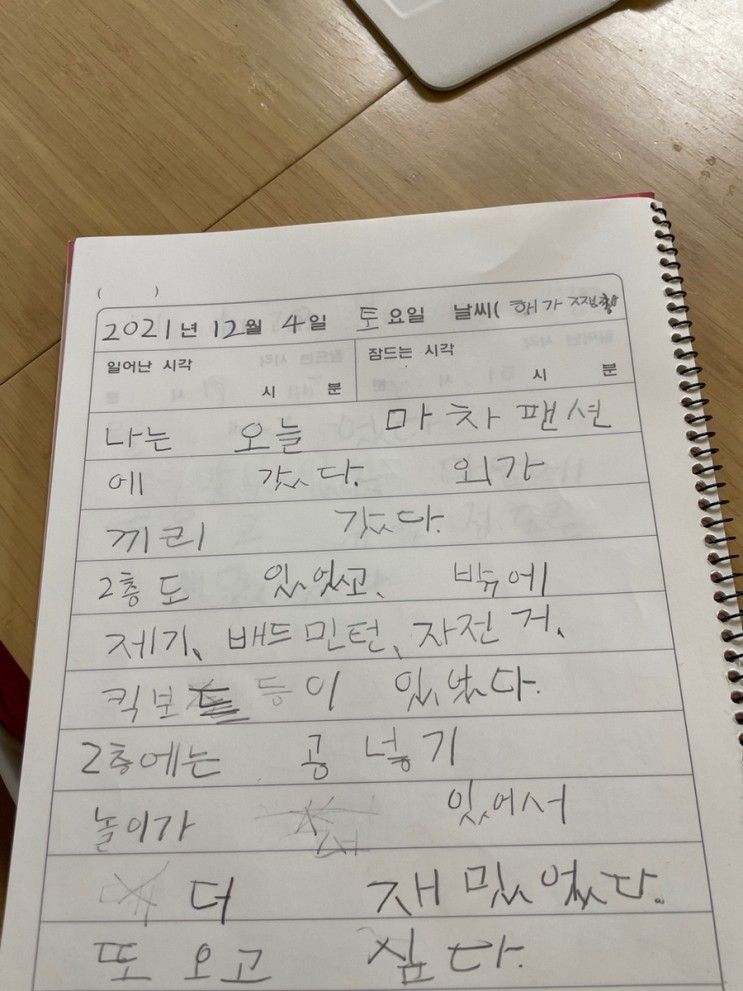 ( )
2021년 12월 4일 토요일 날씨( 해가
일어난 시각 시 분 잠드는 시각 시 분
나는 오늘 마차팬션
에 갔다. 외가
끼리 갔다.
2층도 있었고, 밖에
제기, 배드민턴, 자전거,
킥보드 등이 있었다.
2층에는 공 넣기
놀이가 있어서
더 재밌었다.
또 오고 싶다.